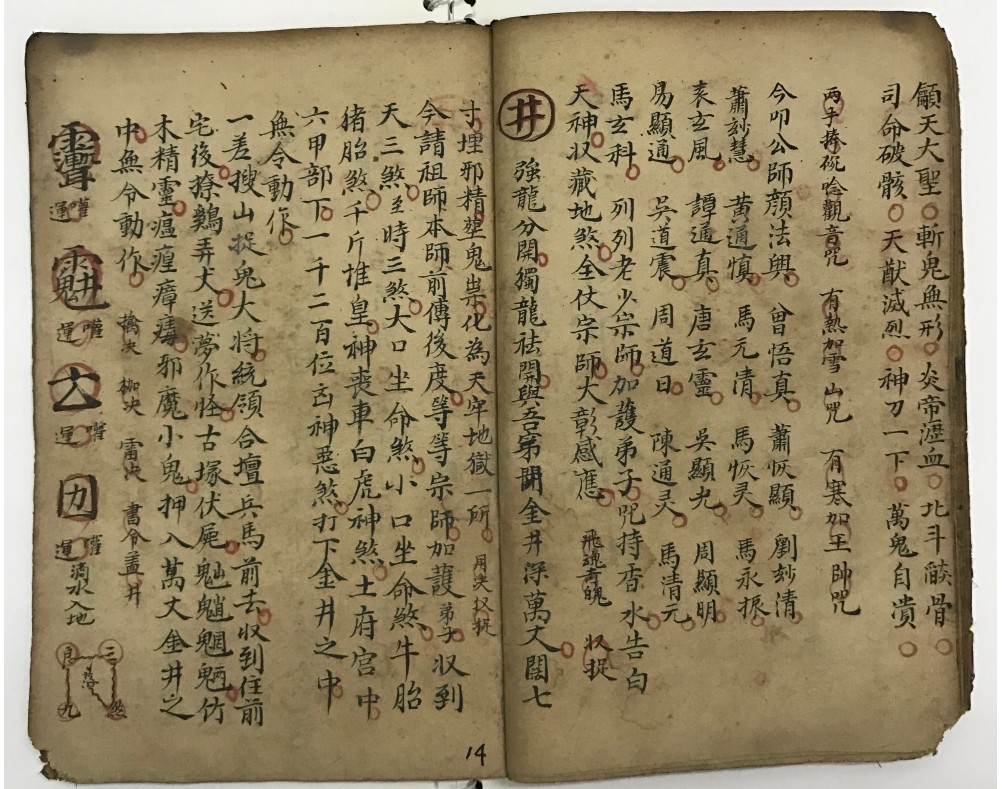 籲天大聖斬鬼無形炎帝瀝血北斗骨
司命破骸天猷滅烈神刀一下萬鬼自潰
兩手捧碗唸觀音咒 有熱加雪山咒 有寒加王帥咒
今叩公師顏法興 曾悟真 蕭恢顯 劉玅清
蕭玅慧 黃通慎 馬元清 馬恢灵 馬永振
袁玄風 譚通真 唐玄靈 吳顯光 周顯明
易顯通 吳道震 周道日 陳通灵 馬清元
馬玄科 列列老少宗師加護弟子咒持香水告白
天神収藏地煞全仗宗師大彰感應 飛魂 収捉
井 強龍分開獨龍祛開與吾弟開金井深萬丈闊七
寸埋邪精塟鬼祟化為天牢地獄一所 用決収捉
今請祖師本師前傳後度等等宗師加護弟子収到
天三煞 時三煞大口坐命煞小口坐命煞牛胎
猪胎煞千斤惟皇神喪車白虎神煞土府宫中
六甲部下一千二百位㐫神惡煞打下金井之中
無令動作
一差搜山捉鬼大将統領合壇兵馬前去収到住前
宅後撩鷄弄犬送夢作怪古塚伏屍魈魍魎竹
木精靈瘟瘟瘴癘邪魔小鬼押入萬丈金井之
中無令動作 擒决 枷决 雷决 書令盖井
運 運 運 運 滴水入地 三 煞 九
14